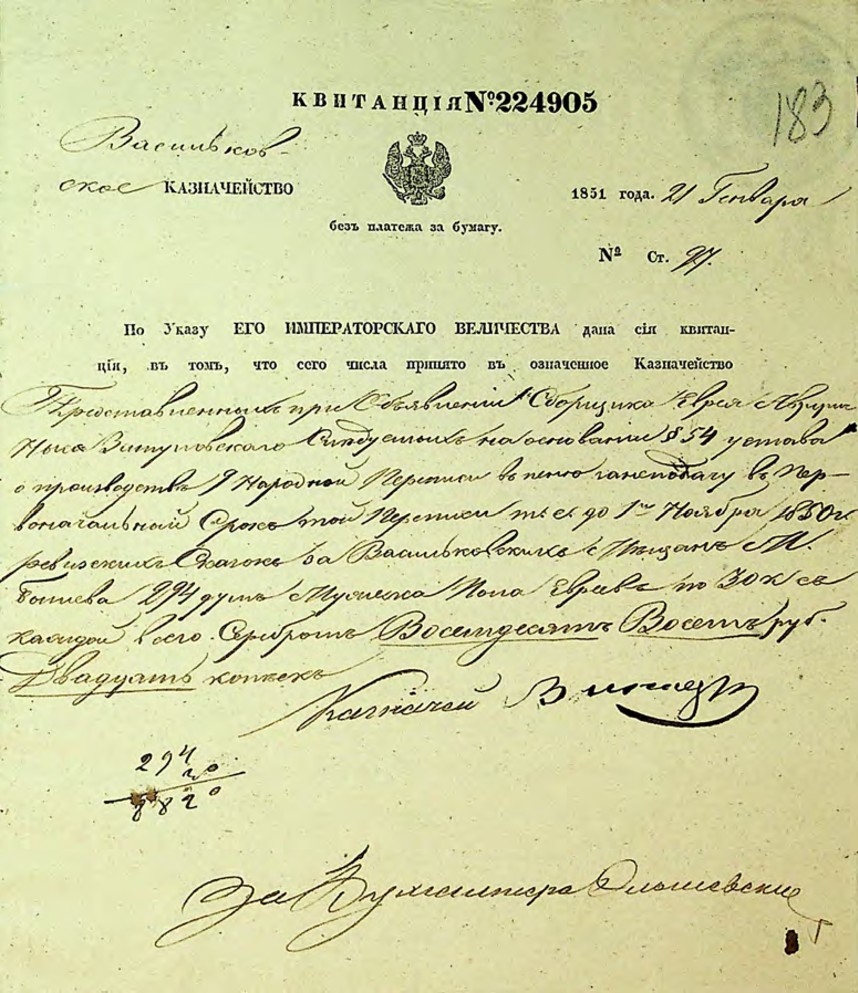 КВИТАНЦІЯ №224905
183
Васильков-
ское КАЗНАЧЕЙСТВО
1851 года. 21 Генваря
безъ платежа за бумагу.
№ Ст. 27.
По Указу ЕГО ИМПЕРАТОРСКАГО ВЕЛИЧЕСТВА дана сія квитан-
ція, въ томъ, что сего числа принято въ означенное Казначейство
Представленныхъ при Объявленіи Сборщика Еврея
Слѣдуемыхъ на основаніи §54 устава
о производствѣ 9 Народной Переписи въ пеню за неподачу въ пер-
воначальный Срокъ той Переписи т. е. до 1го Ноября 1850 г.
ревизскихъ Сказокъ за Васильковскихъ Мѣщанъ М.
294 душъ Мужеска Пола Евреевъ по 30 к съ
каждой всего Серебромъ Восемдесятъ Восемь руб.
Двадцать копѣекъ
Казначей
294
30
8820
За Бухгалтера Ольшевскій